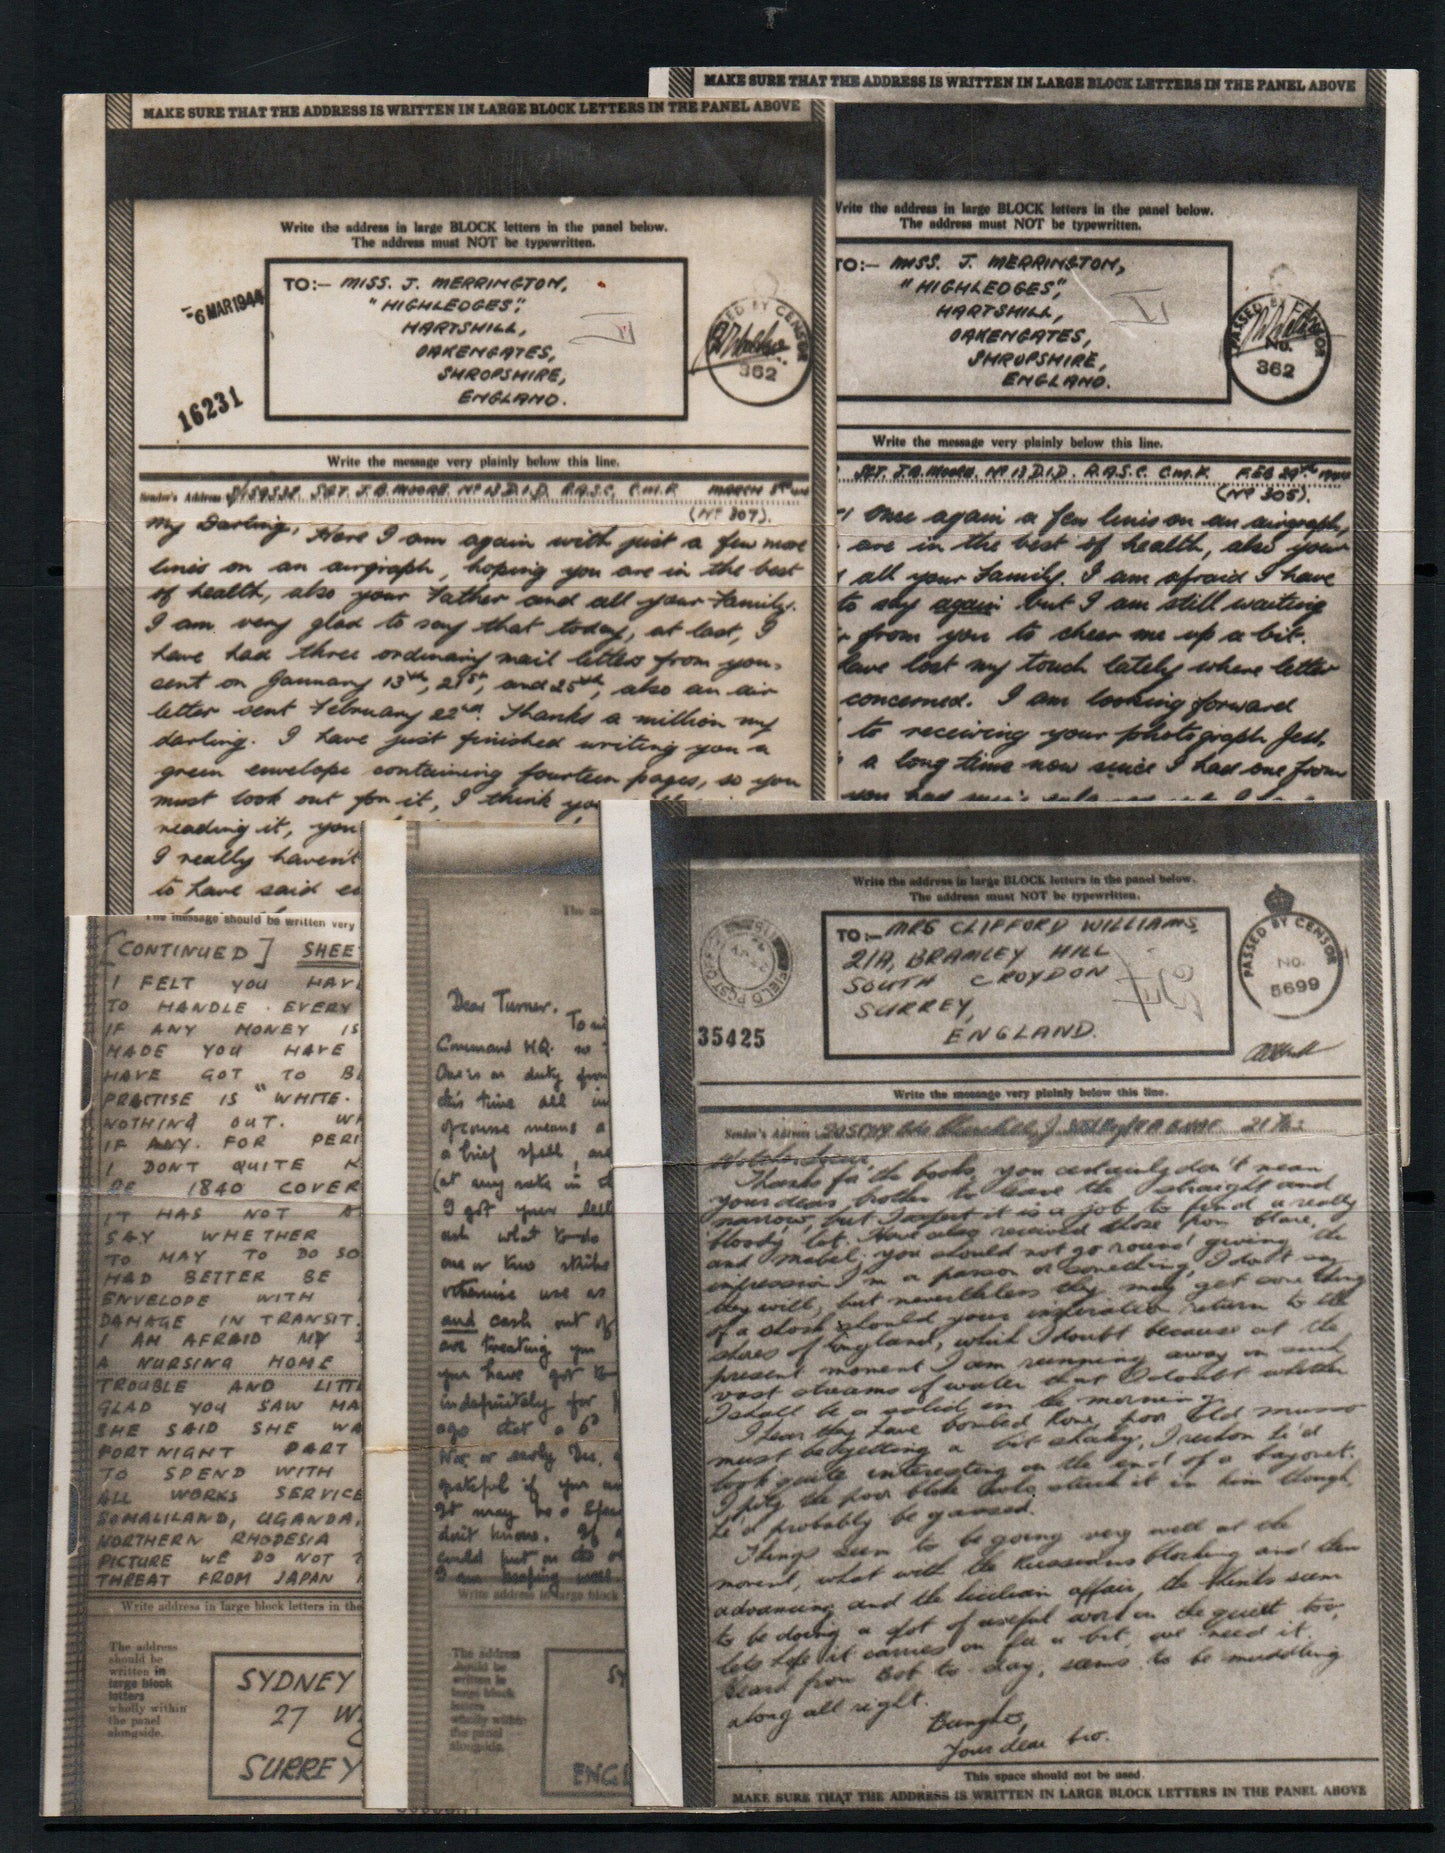 MAKE SURE THAT THE ADDRESS IS WRITTEN IN LARGE BLOCK LETTERS IN THE PANEL ABOVE
Write the address in large BLOCK letters in the panel below.
The address must NOT be typewritten.
TO:- MISS. J. MERRINGTON,
"HIGHLEDGES",
HARTSHILL,
OAKENGATES,
SHROPSHIRE,
ENGLAND.
-6 MAR 1944
16231
362
Write the message very plainly below this line.
Sender's Address SGT. J.A. MOORE. Nº 13 D.I.D. R.A.S.C. C.M.F. MARCH 5th
(Nº 307).
My Darling, Here I am again with just a few more
lines on an airgraph, hoping you are in the best
of health, also your Father and all your Family.
I am very glad to say that today, at last, I
have had three ordinary mail letters from you.
sent on January 13th, 21st, and 25th, also an air
letter sent February 22nd. Thanks a million my
darling. I have just finished writing you a
green envelope containing fourteen pages, so you
must look out for it, I think you
reading it, you
I really haven't
to have said
MAKE SURE THAT THE ADDRESS IS WRITTEN IN LARGE BLOCK LETTERS IN THE PANEL ABOVE
Write the address in large BLOCK letters in the panel below.
The address must NOT be typewritten.
TO:- MISS. J. MERRINGTON,
"HIGHLEDGES",
HARTSHILL,
OAKENGATES,
SHROPSHIRE,
ENGLAND.
PASSED BY CENSOR
No.
362
Write the message very plainly below this line.
SGT. J.A. MOORE. Nº 13 D.I.D. R.A.S.C. C.M.F. FEB 29th 1944
(Nº 305).
Once again a few lines on an airgraph,
are in the best of health, also your
all your Family. I am afraid I have
to say again but I am still waiting
from you to cheer me up a bit.
have lost my touch lately where letter
concerned. I am looking forward
to receiving your photograph Jess,
a long time now since I had one from
you
The message should be written very
[CONTINUED] SHEE
I FELT YOU HAV
TO HANDLE. EVERY
IF ANY MONEY IS
MADE YOU HAVE
HAVE GOT TO B
PRACTISE IS "WHITE.
NOTHING OUT. WH
IF ANY. FOR PERI
I DONT QUITE K
RE 1840 COVER
IT HAS NOT A
SAY WHETHER
TO MAY TO DO SO
HAD BETTER BE
ENVELOPE WITH
DAMAGE IN TRANSIT.
I AM AFRAID MY
A NURSING HOME
TROUBLE AND LITT
GLAD YOU SAW MA
SHE SAID SHE WA
FORTNIGHT PART
TO SPEND WITH
ALL WORKS SERVICE
SOMALILAND, UGANDA,
NORTHERN RHODESIA
PICTURE WE DO NOT
THREAT FROM JAPAN
Write address in large block letters in the
The address
should be
written in
large block
letters
wholly within
the panel
alongside.
SYDNEY
27 W
SURREY
Dear Turner.
Command HQ. so
One is on duty from
this time all in
of course means a
a brief spell, and
(at any rate in t
I got your lett
ask what to do
one or two strikes
otherwise use as
and cash out of
are treating you
you have got to
indefinitely for
ago that a 6d
Nov or early Dec,
grateful if you
It may be a
don't know. If
could put on the
I am keeping well.
Write address in large block
The address
should be
written in
large block
letters
wholly within
the panel
alongside.
SY
ENGL
Write the address in large BLOCK letters in the panel below.
The address must NOT be typewritten.
TO:- MRS CLIFFORD WILLIAMS,
21A, BRAMLEY HILL
SOUTH CROYDON
SURREY,
ENGLAND.
FIELD POST OFFICE
35425
PASSED BY CENSOR
No.
5699
Write the message very plainly below this line.
Sender's Address
Thanks for the books, you certainly don't mean
your dear brother to leave the straight and
narrow, but I expect it is a job to find a really
bloody lot. Have also received those from Blare,
and Mabel; you should not go round giving the
impression I'm a parson or something, I don't say
they will, but nevertheless they may get some thing
of a shock should your inebriated return to the
shores of England, which I doubt because at the
present moment I am running away in such
vast streams of water that I doubt whether
I shall be a solid in the morning.
I hear they have bombed Rome, poor old musso
must be getting a bit shaky, I reckon he'd
look quite interesting on the end of a bayonet.
I pity the poor bloke who stuck it in him though,
he'd probably be gassed.
Things seem to be going very well at the
moment, what with the Russians blocking and then
advancing and the Sicilian affair, the Yanks seem
to be doing a lot of useful work on the quiet too,
lets hope it carries on for a bit, we need it.
Heard from Bob to-day, seems to be muddling
along all right.
Bungho,
Your dear bro.
This space should not be used.
MAKE SURE THAT THE ADDRESS IS WRITTEN IN LARGE BLOCK LETTERS IN THE PANEL ABOVE